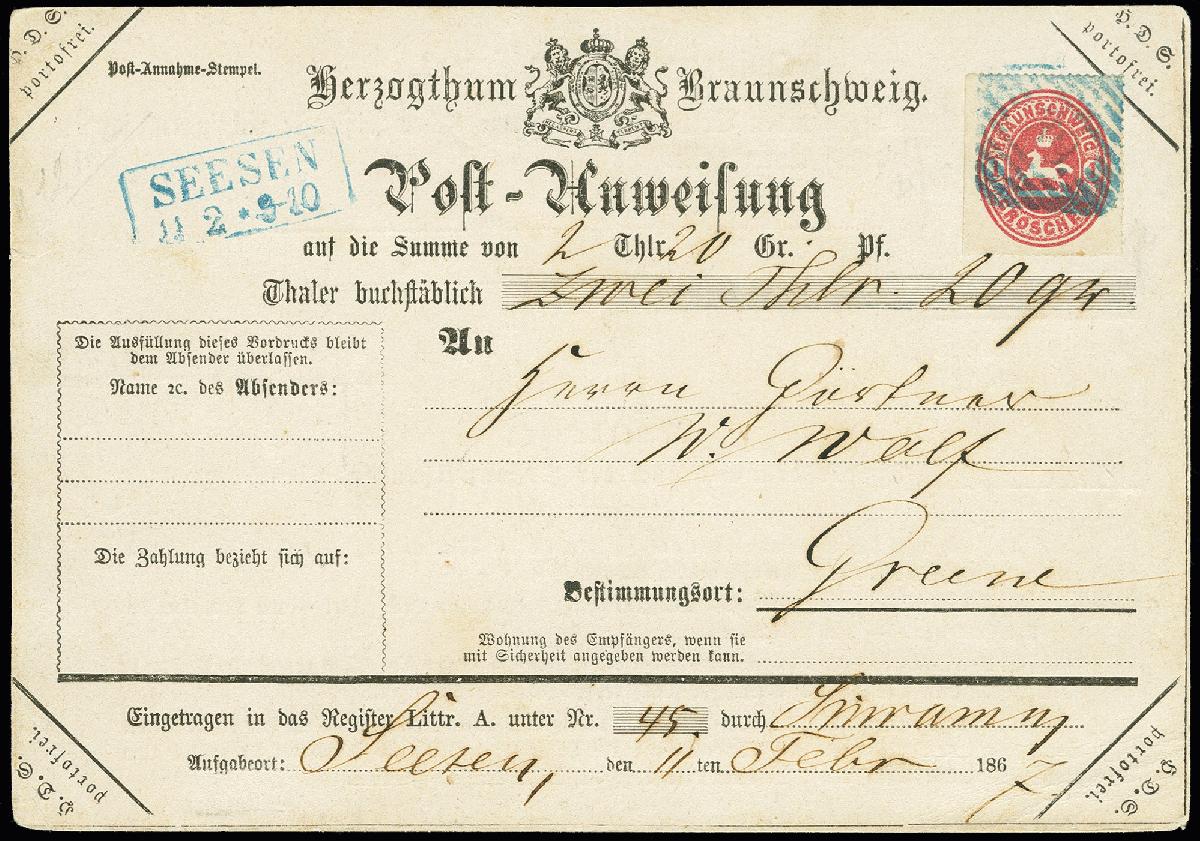 H. D. S.
portofrei.
H. D. S.
portofrei.
Post-Annahme-Stempel.
Herzogthum Braunschweig.
BRAUNSCHWEIG
GROSCHEN
SEESEN
11 2 * 9-10
Post-Anweisung
auf die Summe von 2 Thlr. 20 Gr. Pf.
Thaler buchstäblich zwei Thlr. 20 gr.
An
Herrn Gärtner
W. Wolf
Die Ausfüllung dieses Vordrucks bleibt
dem Absender überlassen.
Name ꝛc. des Absenders:
Die Zahlung bezieht sich auf:
Bestimmungsort: Greene
Wohnung des Empfängers, wenn sie
mit Sicherheit angegeben werden kann.
Eingetragen in das Register Littr. A. unter Nr. 45. durch
Aufgabeort: Seesen, den 11 ten Febr 1867
H. D. S.
portofrei.
H. D. S.
portofrei.